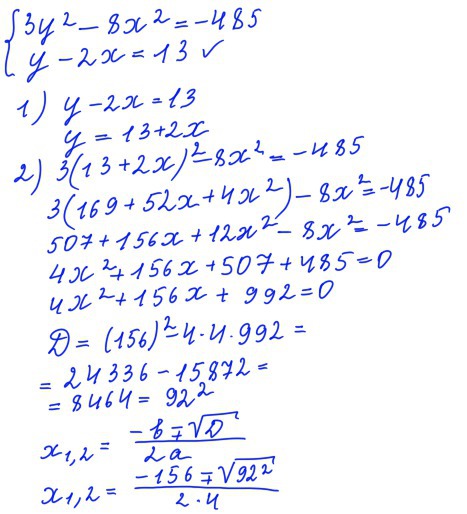 { 3y² - 8x² = -485
y - 2x = 13 ✓
1) y - 2x = 13
y = 13 + 2x
2) 3(13 + 2x)² - 8x² = -485
3(169 + 52x + 4x²) - 8x² = -485
507 + 156x + 12x² - 8x² = -485
4x² + 156x + 507 + 485 = 0
4x² + 156x + 992 = 0
D = (156)² - 4·4·992 =
= 24336 - 15872 =
= 8464 = 92²
x₁,₂ = (-b ∓ √D) / 2a
x₁,₂ = (-156 ∓ √92²) / 2·4